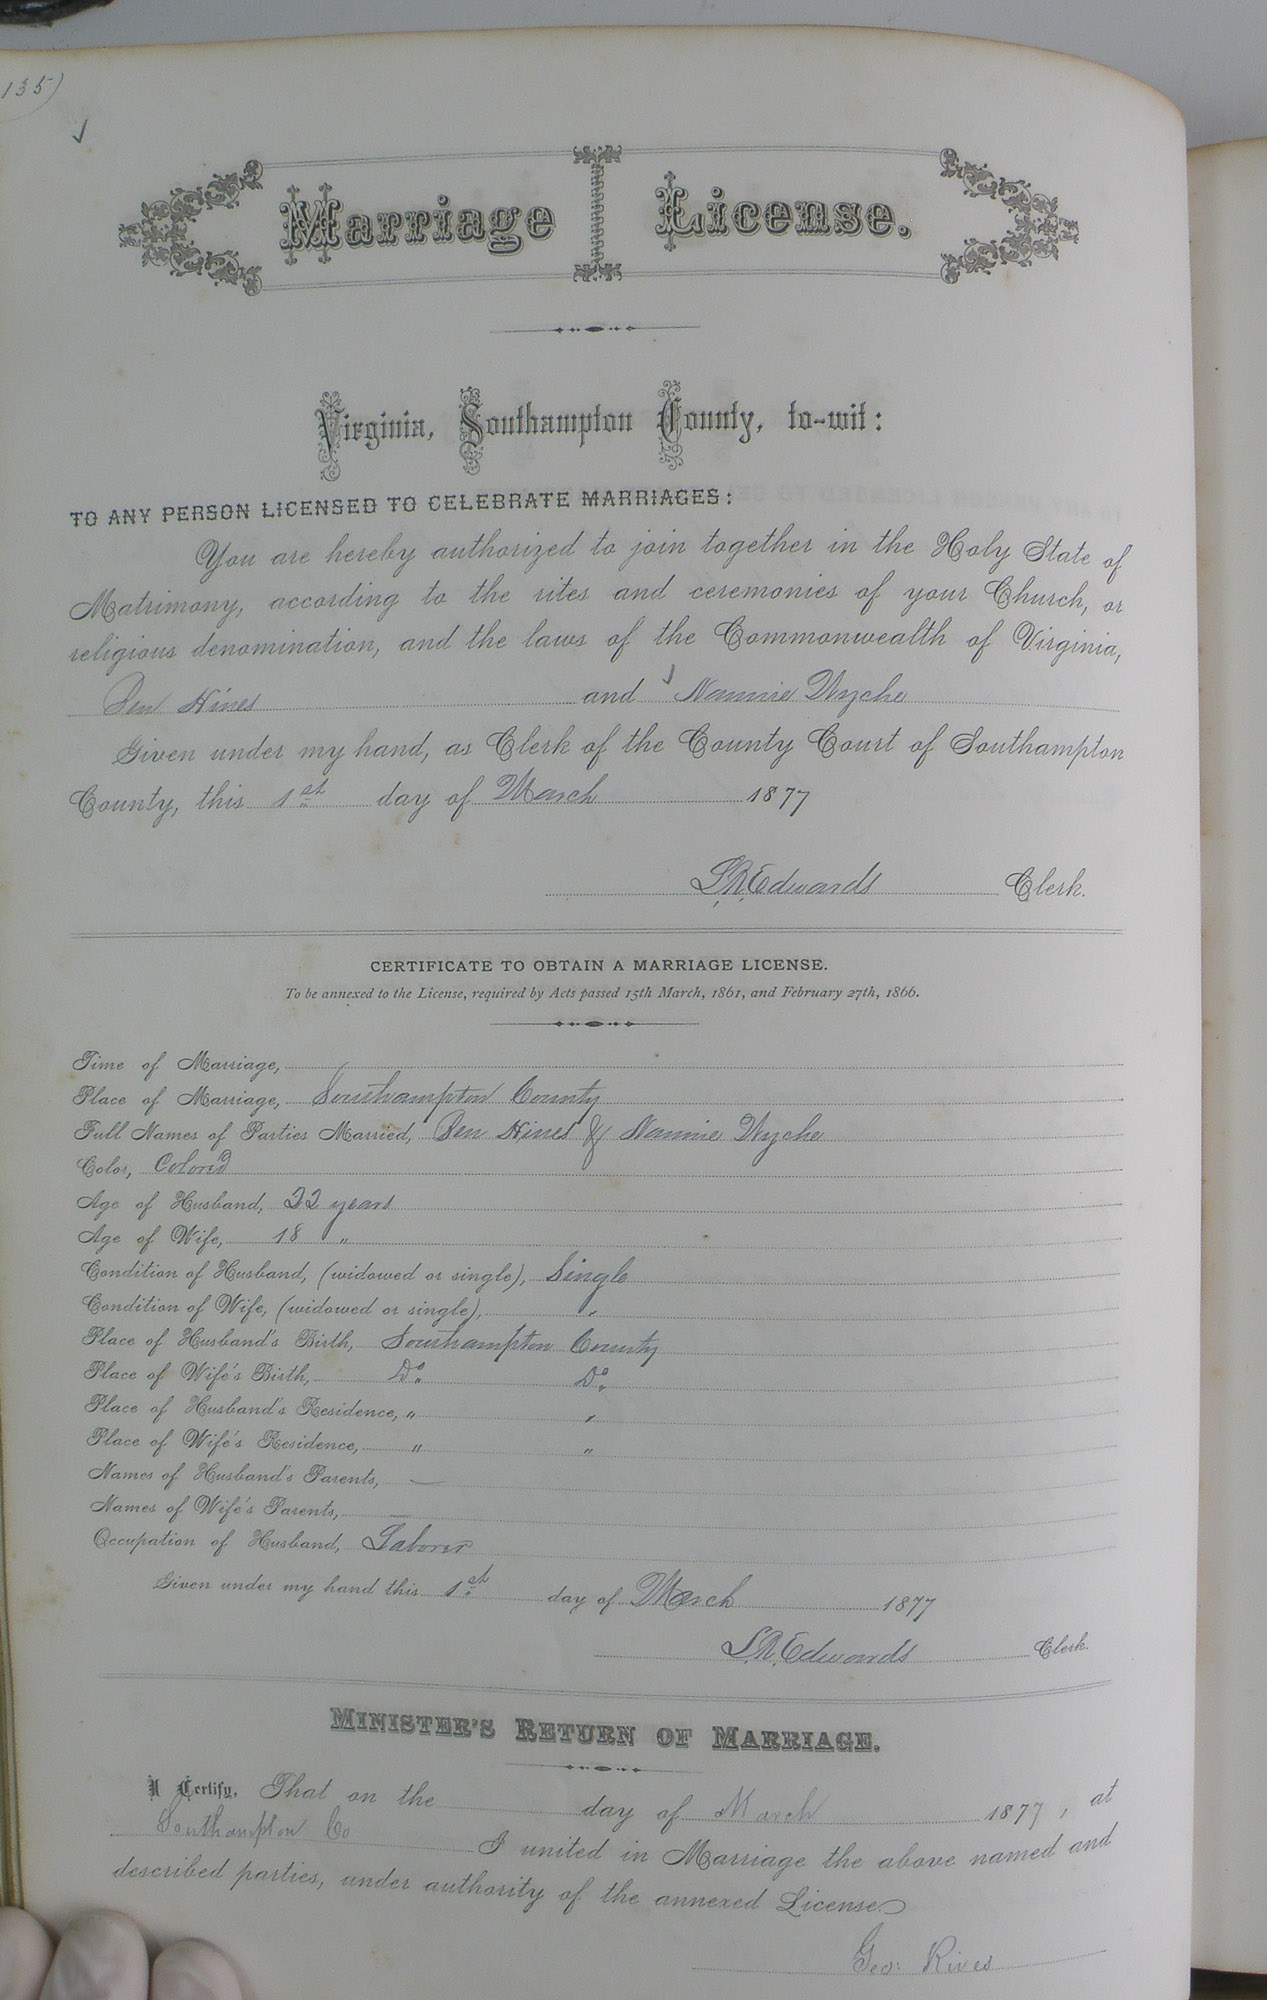 135)
✓
Marriage License.
Virginia, Southampton County, to-wit:
TO ANY PERSON LICENSED TO CELEBRATE MARRIAGES:
You are hereby authorized to join together in the Holy State of
Matrimony, according to the rites and ceremonies of your Church, or
religious denomination, and the laws of the Commonwealth of Virginia,
Ben Hines and ✓ Nannie Wyche
Given under my hand, as Clerk of the County Court of Southampton
County, this 1st day of March 1877
L.R. Edwards Clerk.
CERTIFICATE TO OBTAIN A MARRIAGE LICENSE.
To be annexed to the License, required by Acts passed 15th March, 1861, and February 27th, 1866.
Time of Marriage,
Place of Marriage, Southampton County
Full Names of Parties Married, Ben Hines & Nannie Wyche
Color, Colored
Age of Husband, 22 years
Age of Wife, 18 "
Condition of Husband, (widowed or single), Single
Condition of Wife, (widowed or single), "
Place of Husband's Birth, Southampton County
Place of Wife's Birth, Do. Do.
Place of Husband's Residence, " "
Place of Wife's Residence, " "
Names of Husband's Parents, —
Names of Wife's Parents, —
Occupation of Husband, Laborer
Given under my hand this 1st day of March 1877
L.R. Edwards Clerk.
MINISTER'S RETURN OF MARRIAGE.
I Certify, That on the day of March 1877, at
Southampton Co I united in Marriage the above named and
described parties, under authority of the annexed License
Geo: Rives